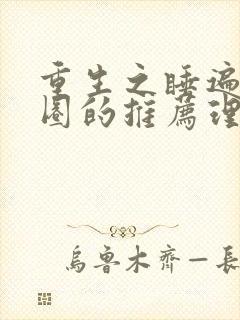 重生之睡遍
圈的推薦理
烏魯木齊—長